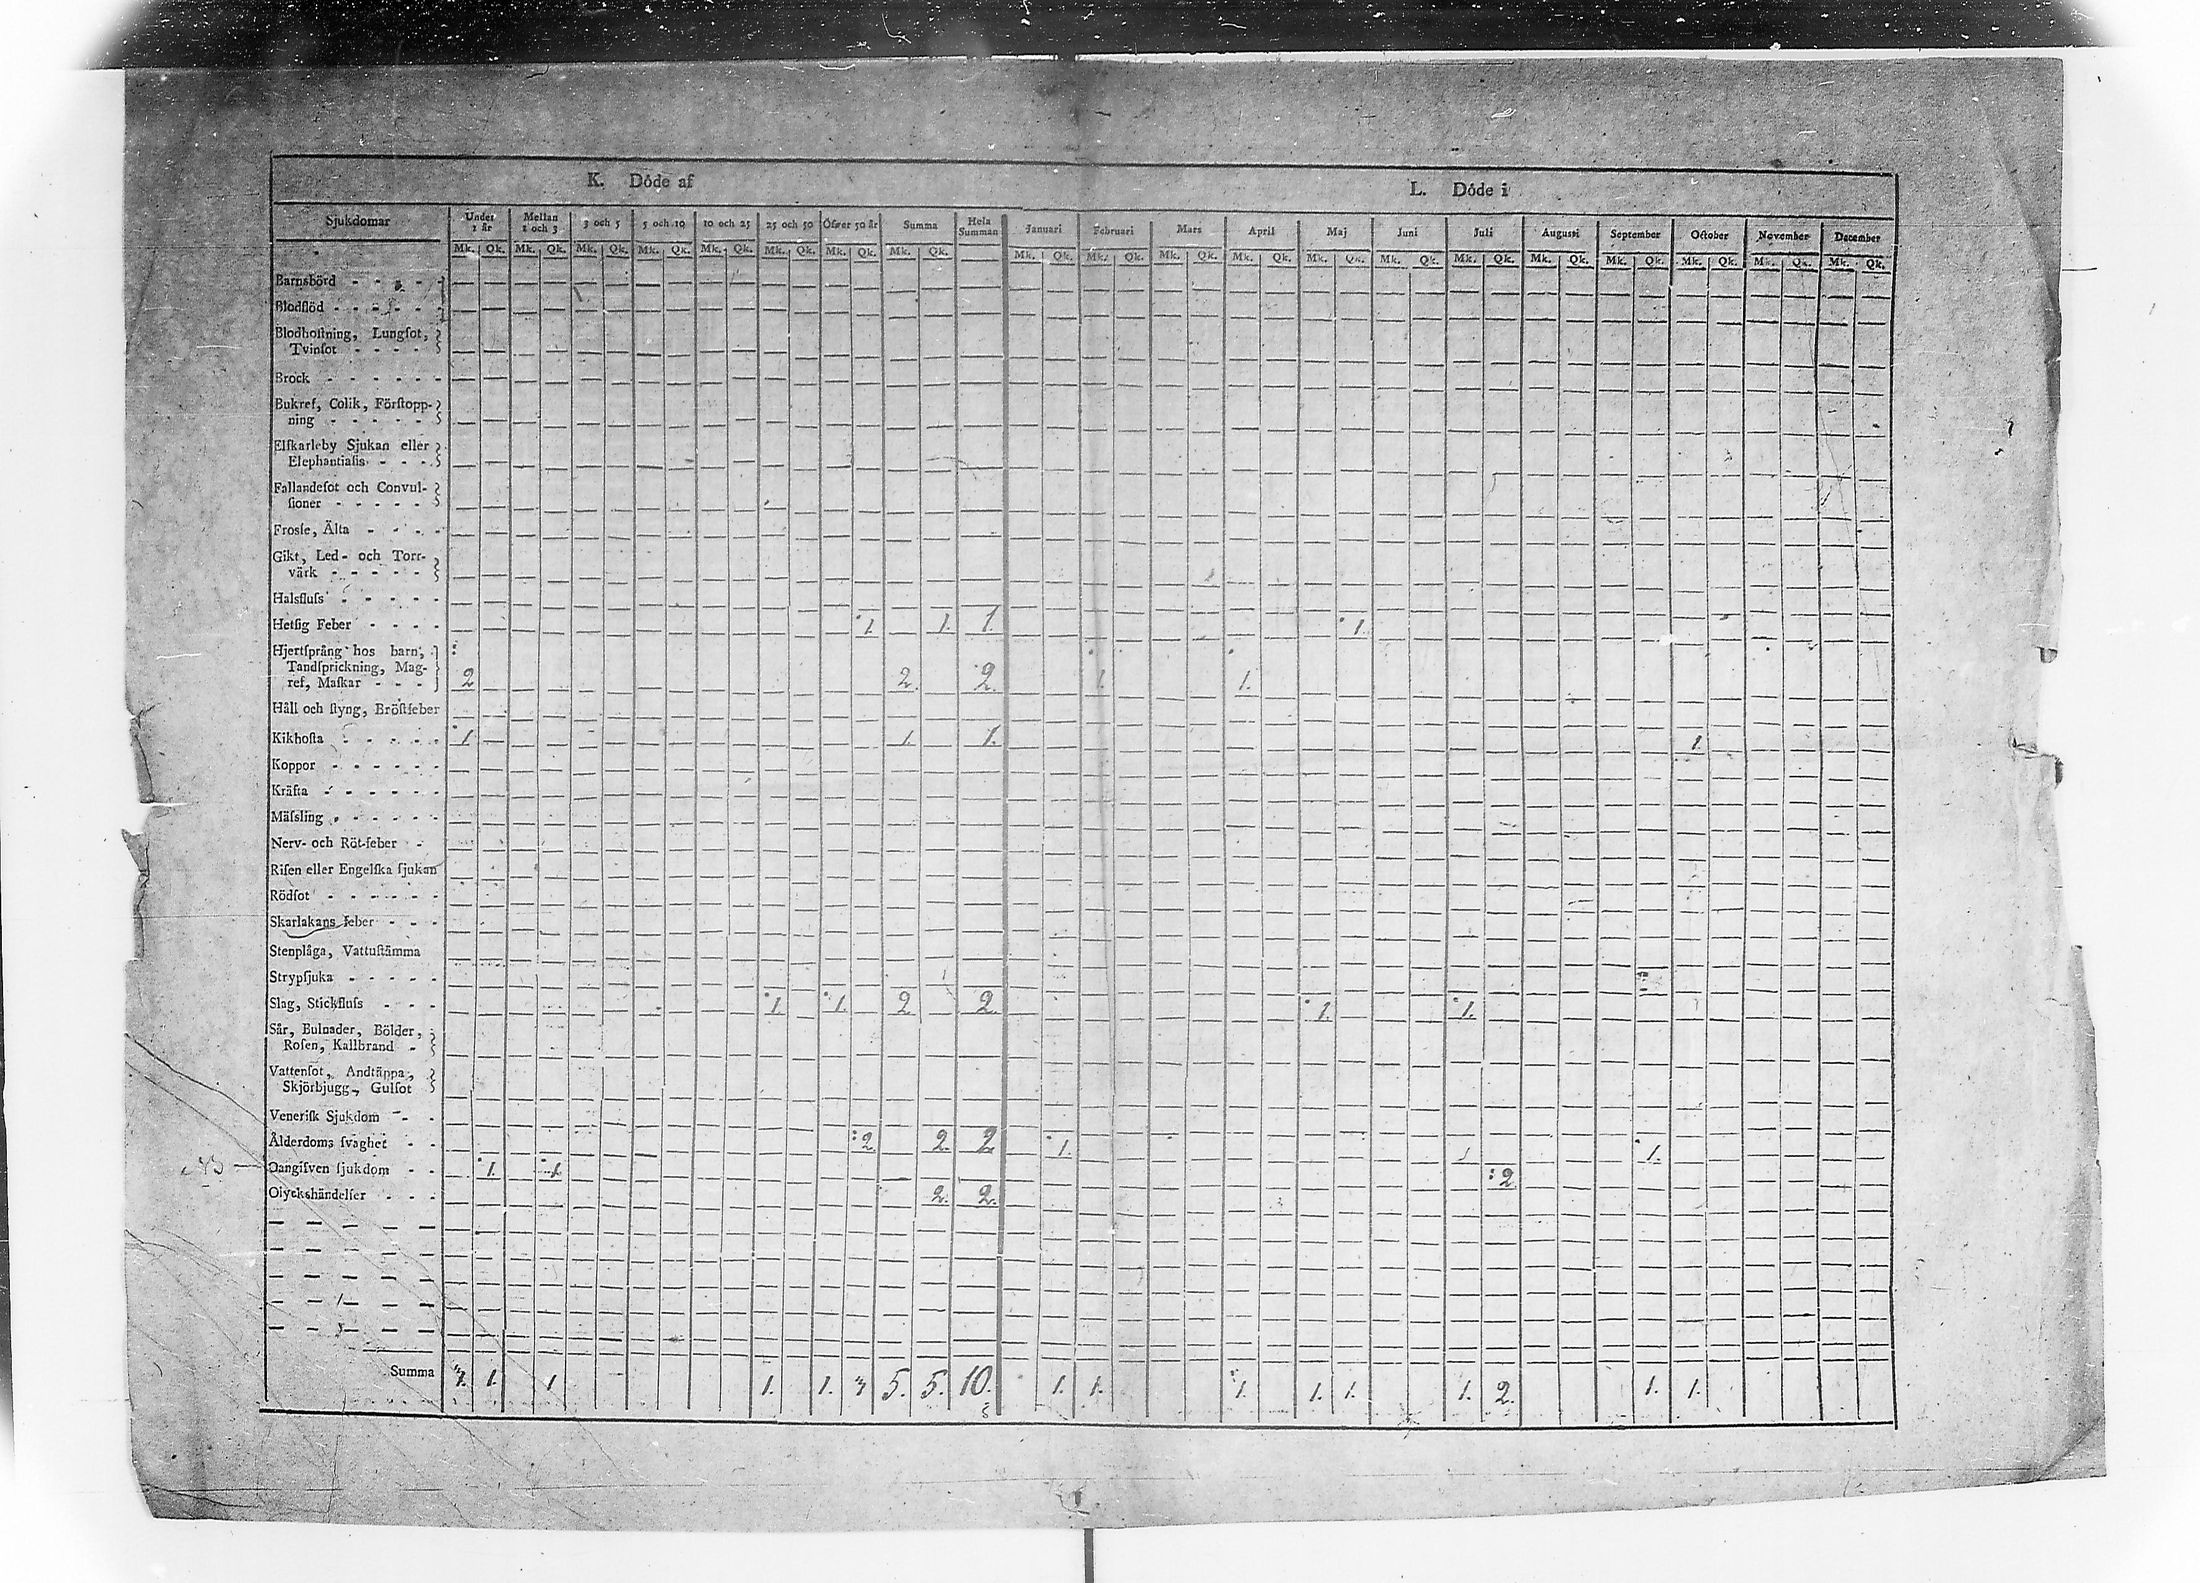 K. Döde af
L. Döde i
Sjukdomar Under 1 år Mellan 1 och 3 3 och 5 5 och 10 10 och 25 25 och 50 Öfver 50 år Summa Hela Summan Januari Februari Mars April Maj Juni Juli Augusti September October November December
Mk. Qk. Mk. Qk. Mk. Qk. Mk. Qk. Mk. Qk. Mk. Qk. Mk. Qk. Mk. Qk. Mk. Qk. Mk. Qk. Mk. Qk. Mk. Qk. Mk. Qk. Mk. Qk. Mk. Qk. Mk. Qk. Mk. Qk. Mk. Qk. Mk. Qk. Mk. Qk.
Barnsbörd - - - - -
Blodflöd - - - - - -
Blodhoſtning, Lungſot,
Tvinſot - - - -
Brock - - - - - -
Bukref, Colik, Förſtopp-
ning - - - - -
Elſkarleby Sjukan eller
Elephantiaſis - - -
Fallandeſot och Convul-
ſioner - - - - -
Frosſe, Älta - - - -
Gikt, Led- och Torr-
värk - - - - -
Halsfluſs - - - - -
Hetſig Feber - - - - 1. 1. 1. 1.
Hjertſprång hos barn,
Tandſprickning, Mag-
ref, Maſkar - - - 2 2. 2. 1. 1.
Håll och ſtyng, Bröſtfeber
Kikhoſta - - - - - 1. 1. 1. 1.
Koppor - - - - - -
Kräfta - - - - - -
Mäſsling - - - - -
Nerv- och Röt-feber -
Riſen eller Engelſka ſjukan
Rödſot - - - - - -
Skarlakans feber - - -
Stenplåga, Vattuſtämma
Strypſjuka - - - - -
Slag, Stickfluſs - - - 1. 1. 2. 2. 1. 1.
Sår, Bulnader, Bölder,
Roſen, Kallbrand -
Vattenſot, Andtäppa,
Skjörbjugg, Gulſot
Veneriſk Sjukdom - -
Ålderdoms ſvaghet - - 2. 2. 2 1. 1.
Oangifven ſjukdom - - 1. 1. 2.
Olyckshändelſer - - - 2. 2.
Summa 3. 1. 1 1. 1. 3 5. 5. 10. 1. 1. 1. 1. 1. 1. 2. 1. 1.